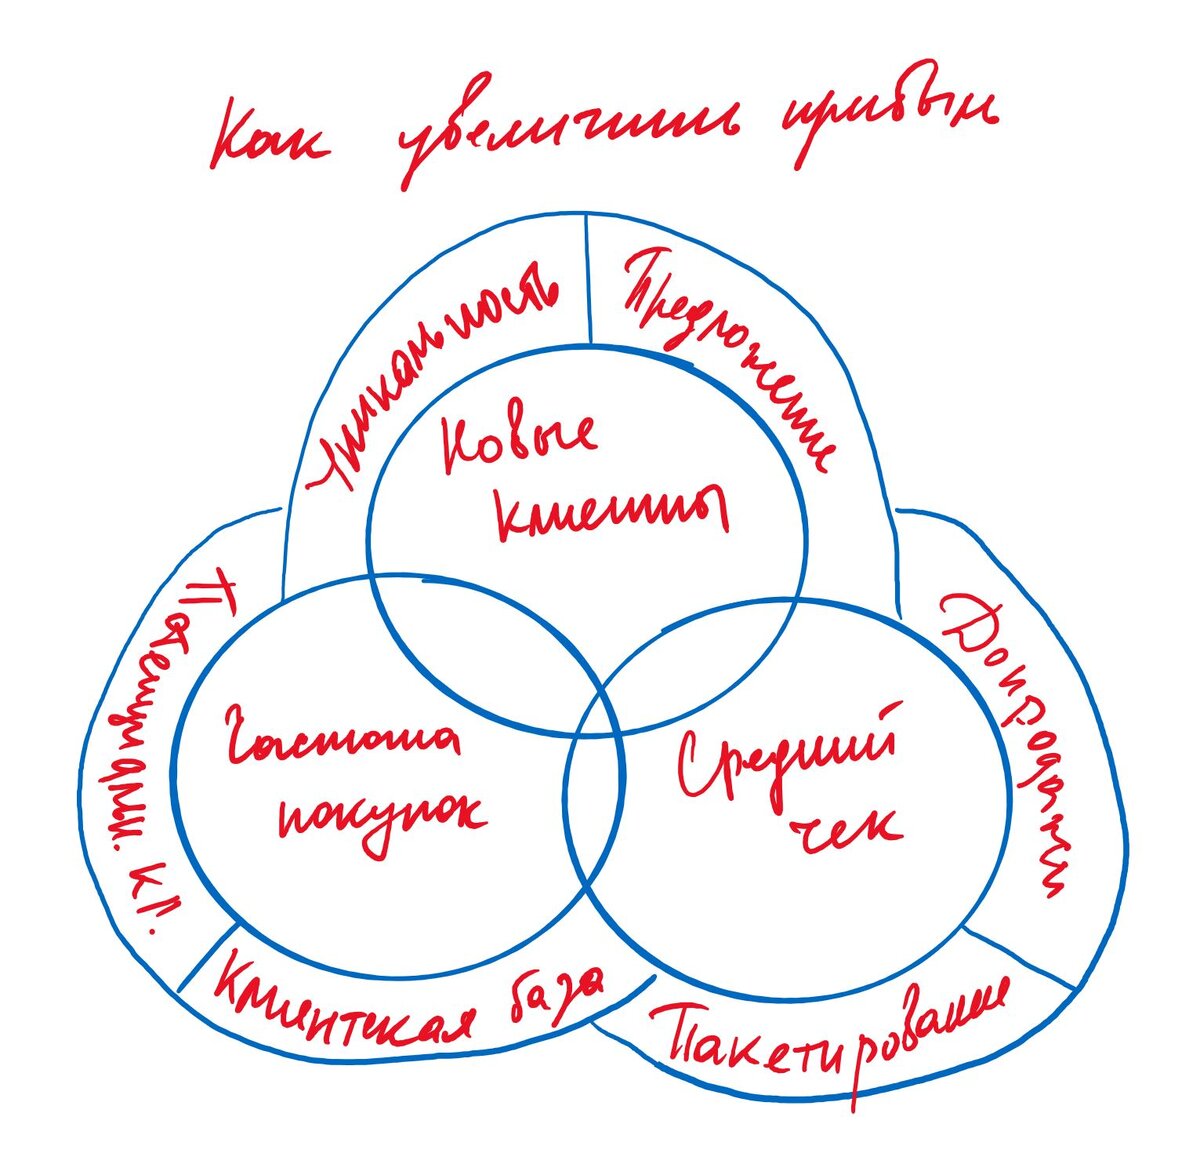 Как увеличить прибыль
Уникальность
Предложение
Новые
клиенты
Потенциалн. кл.
Частота
покупок
Клиентская база
Средний
чек
Допродажи
Пакетирование